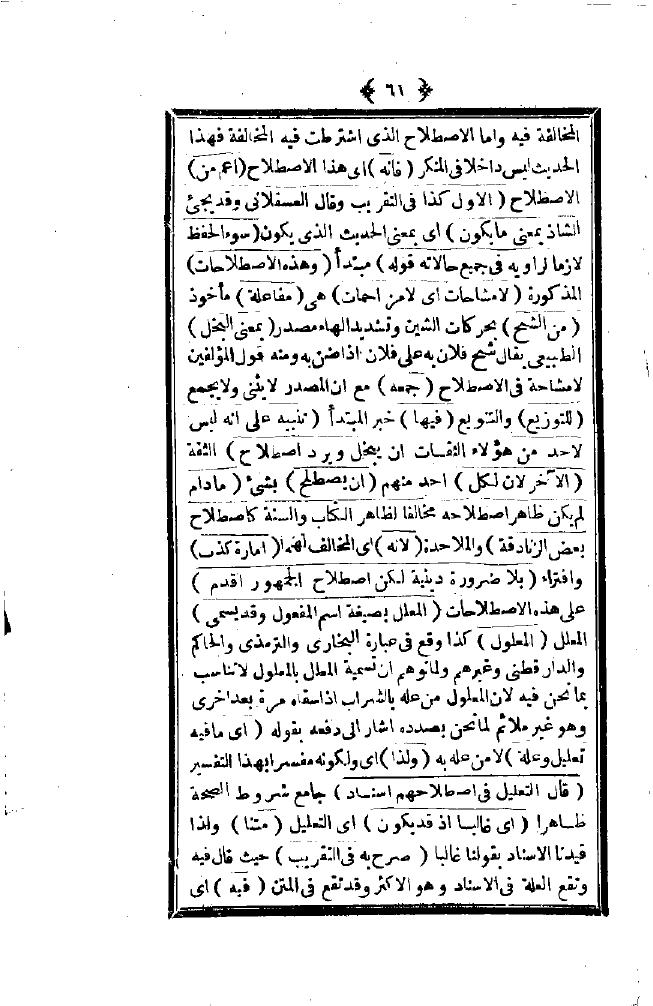 ﴿ ٦١ ﴾
المخالفة فيه واما الاصطلاح الذى اشترطت فيه المخالفة فهذا
الحديث ليس داخلا فى المنكر ( فانه ) اى هذا الاصطلاح ( اعم من )
الاصطلاح ( الاول كذا فى التقريب وقال العسقلانى وقد يجئ
الشاذ بمعنى مايكون ) اى بمعنى الحديث الذى يكون ( سوء الحفظ
لازما لراويه فى جميع حالاته قوله ) مبتدأ ( وهذه الاصطلاحات )
المذكورة ( لامشاحات اى لامزاحمات ) هى ( مفاعلة ) مأخوذ
( من الشح ) بحركات الشين وتشديد الهاء مصدر ( بمعنى البخل )
الطبيعى يقال شح فلان به على فلان اذا ضن به ومنه قول المؤلفين
لامشاحة فى الاصطلاح ( جمعه ) مع ان المصدر لايثنى ولايجمع
( للتوزيع ) والتنويع ( فيها ) خبر المبتدأ ( تنبيه على انه ليس
لاحد من هؤلاء الثقات ان يبخل ويرد اصطلاح ) الثقة
( الآخر لان لكل ) احد منهم ( ان يصطلح ) بشئ ( مادام
لم يكن ظاهر اصطلاحه مخالفا لظاهر الكتاب والسنة كاصطلاح
بعض الزنادقة ) والملاحدة ( لانه ) اى المخالف لهما ( امارة كذب )
وافتراء ( بلا ضرورة دينية لكن اصطلاح الجمهور اقدم )
على هذه الاصطلاحات ( المعلل بصيغة اسم المفعول وقد يسمى )
المعلل ( المعلول ) كذا وقع فى عبارة البخارى والترمذى والحاكم
والدار قطنى وغيرهم ولما توهم ان تسمية المعلل بالمعلول لاتناسب
بما نحن فيه لان المعلول من عله بالشراب اذا سقاه مرة بعد اخرى
وهو غير ملائم لما نحن بصدده اشار الى دفعه بقوله ( اى مافيه
تعليل وعلة ) لا من عله به ( ولذا ) اى ولكونه مفسرا بهذا التفسير
( قال التعليل فى اصطلاحهم اسناد ) جامع شروط الصحة
ظاهرا ( اى غالبا اذ قد يكون ) اى التعليل ( متنا ) ولذا
قيدنا الاسناد بقولنا غالبا ( صرح به فى التقريب ) حيث قال فيه
وتقع العلة فى الاسناد وهو الاكثر وقد تقع فى المتن ( فيه ) اى